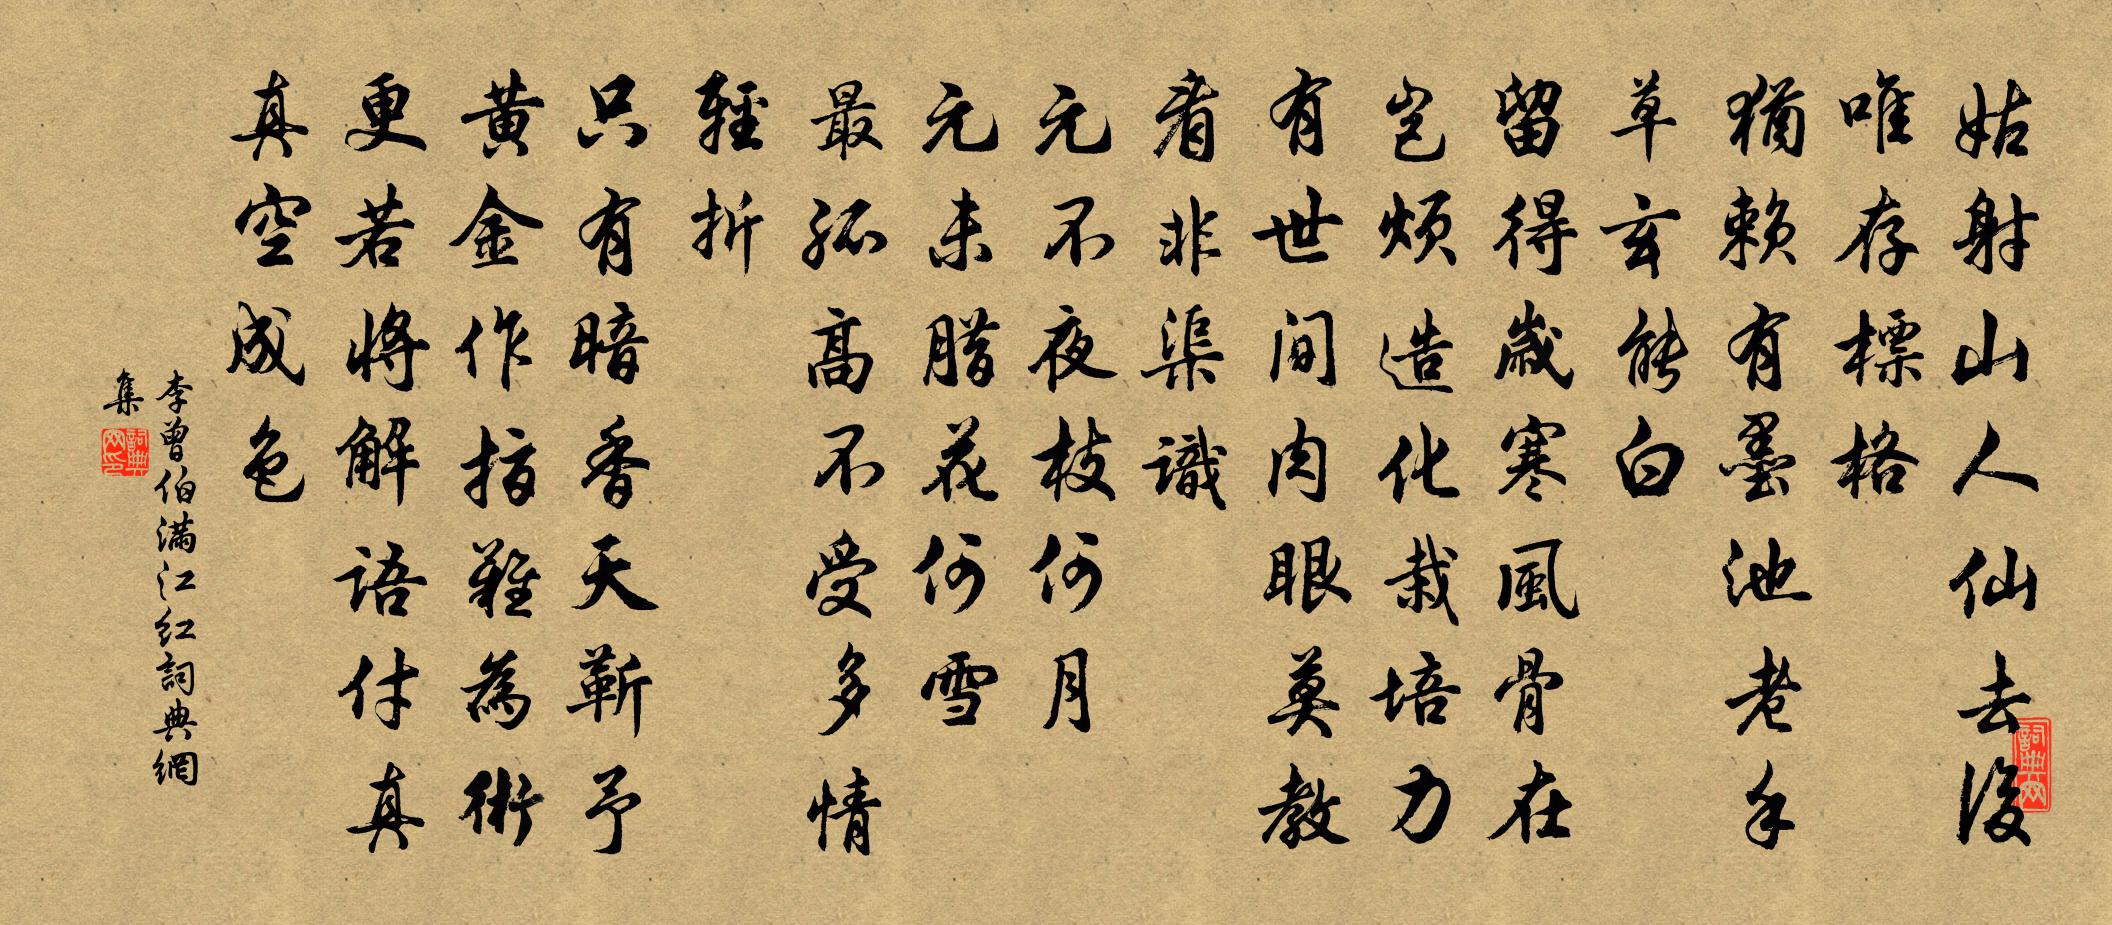 姑射山人仙去後
唯存標格
猶賴有墨池老手
草玄能白
留得歲寒風骨在
豈煩造化栽培力
有世間肉眼莫教
看非渠識
元不夜枝何月
元未腊花何雪
最孤高不受多情
輕折
只有暗香天靳予
黄金作指難為術
更若將解語付真
真空成色
李曾伯滿江紅詞典網
集
詞典網
詞典網印